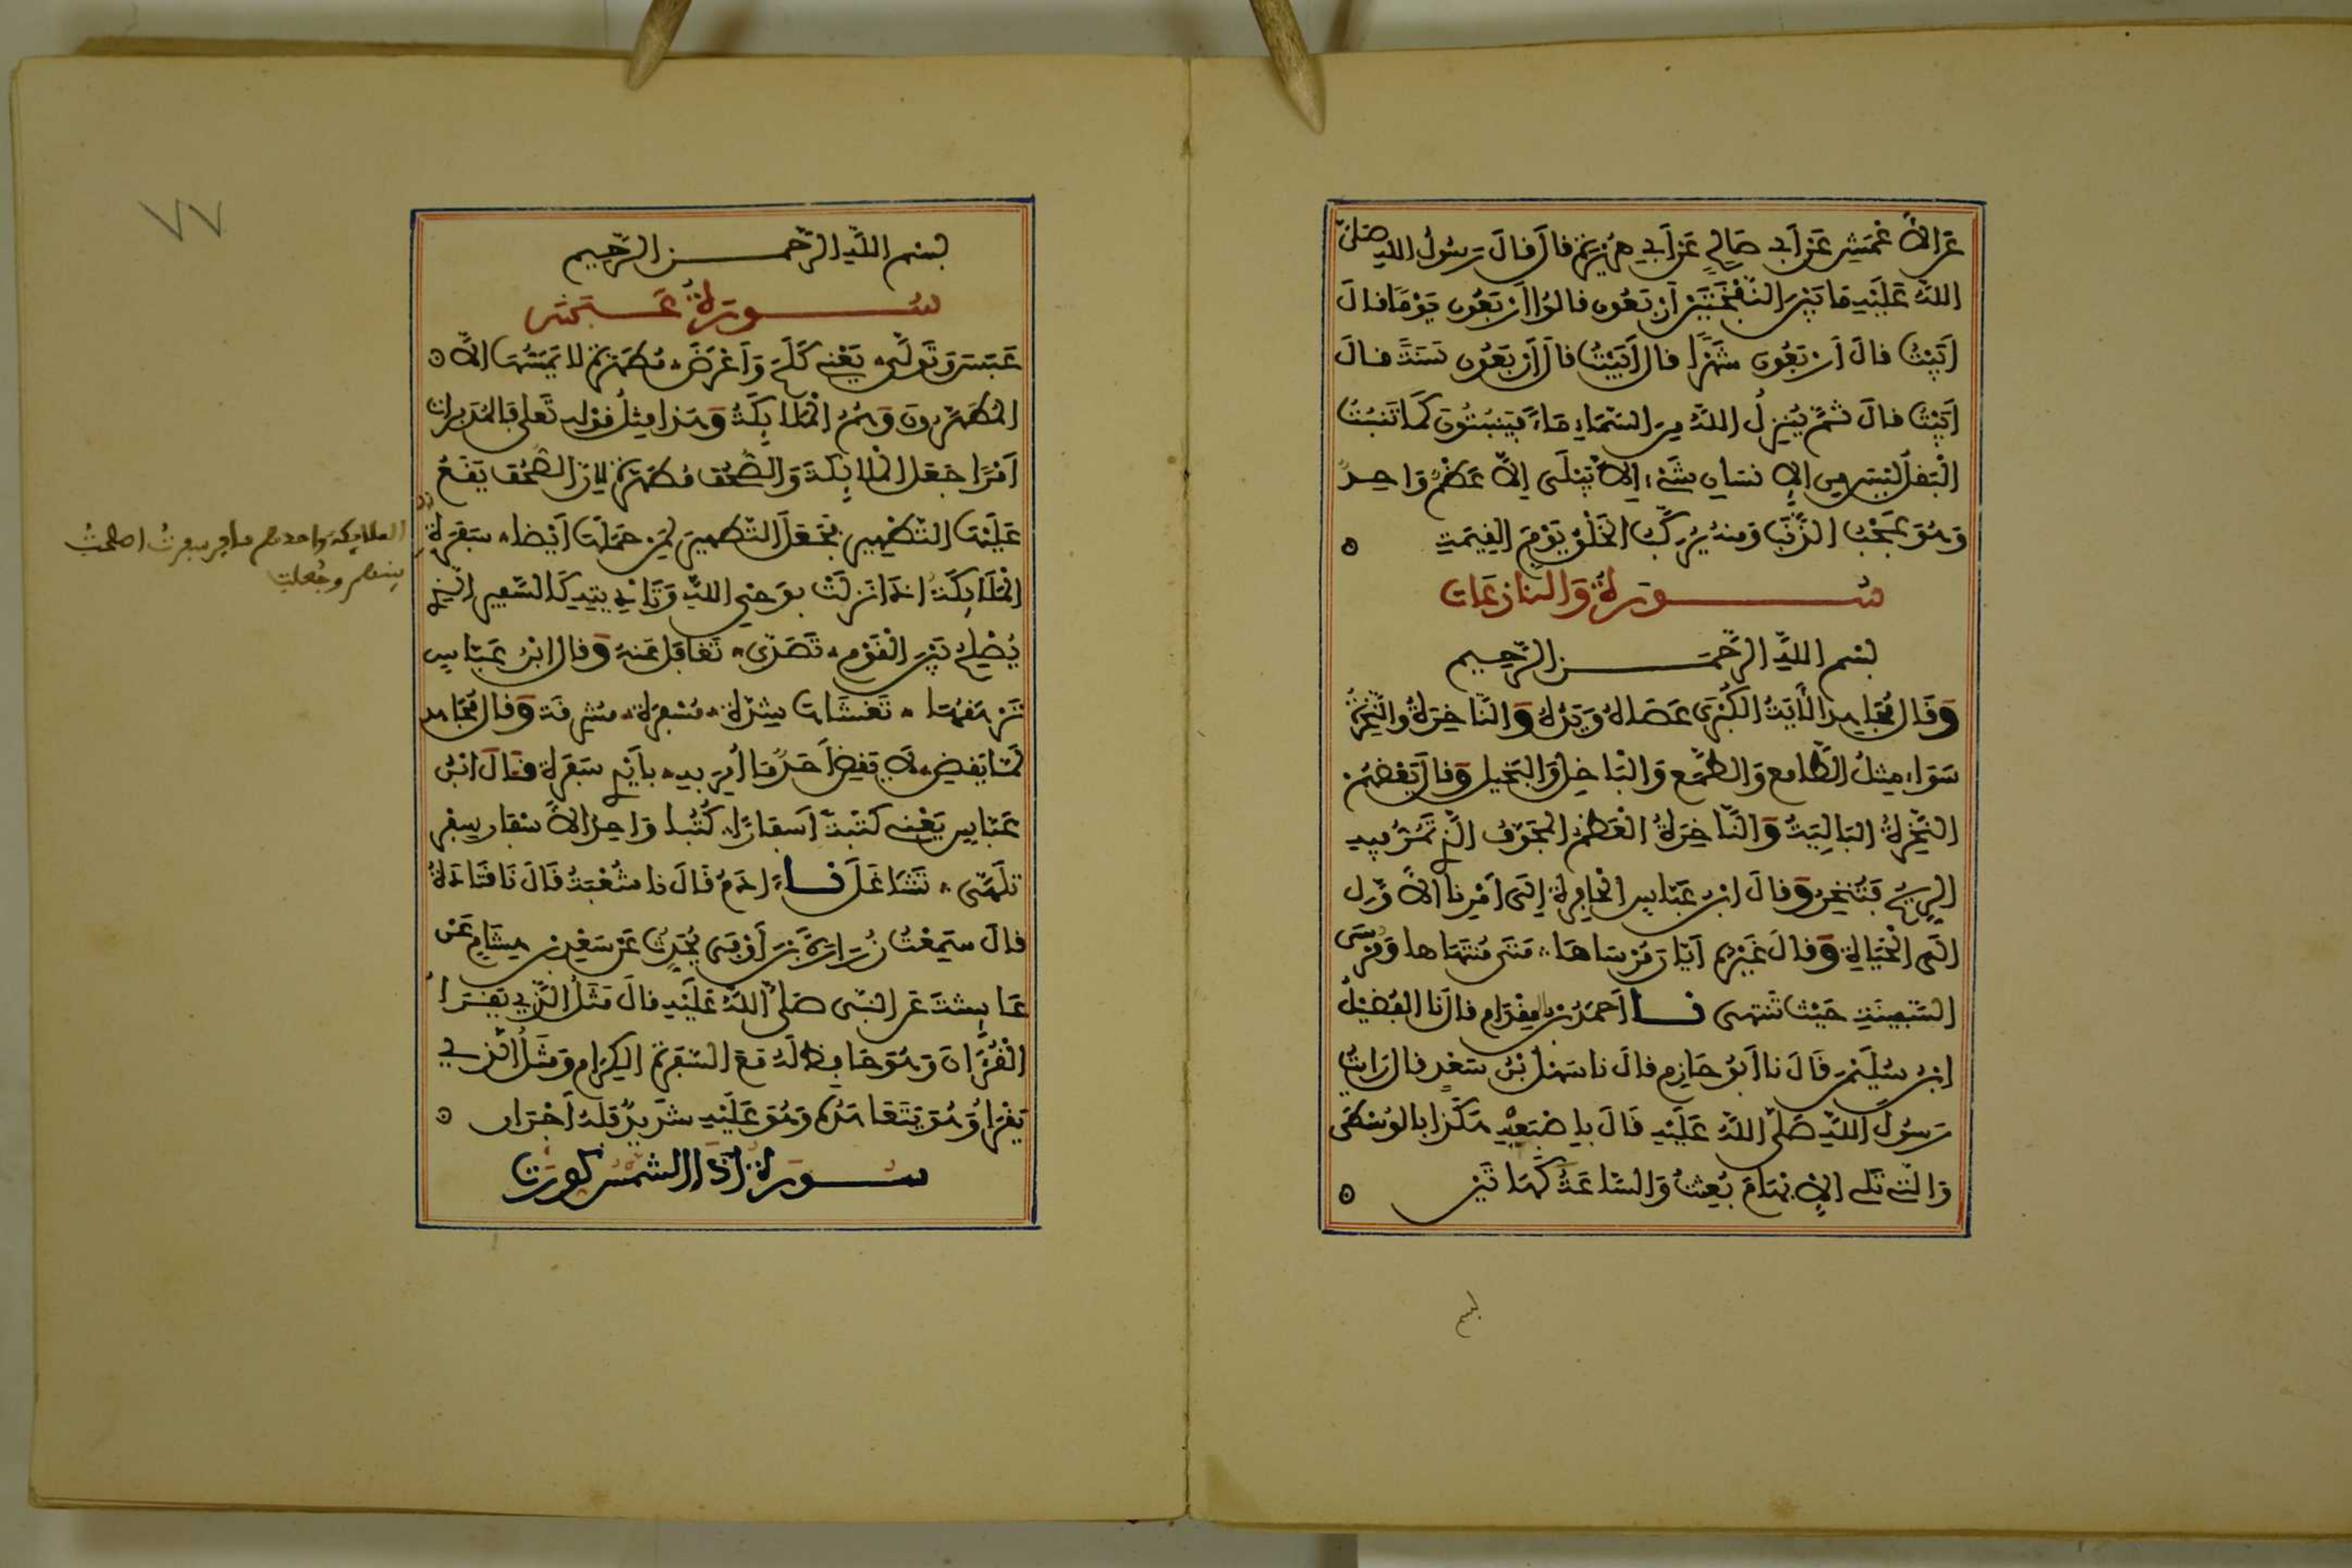 عَنِ الْأَعْمَشِ عَنْ أَبِي صَالِحٍ عَنْ أَبِي هُرَيْرَةَ قَالَ قَالَ رَسُولُ اللَّهِ صَلَّى
اللَّهُ عَلَيْهِ مَا بَيْنَ النَّفْخَتَيْنِ أَرْبَعُونَ قَالُوا أَرْبَعُونَ يَوْمًا قَالَ
أَبَيْتُ قَالَ أَرْبَعُونَ شَهْرًا قَالَ أَبَيْتُ قَالَ أَرْبَعُونَ سَنَةً قَالَ
أَبَيْتُ قَالَ ثُمَّ يُنْزِلُ اللَّهُ مِنَ السَّمَاءِ مَاءً فَيَنْبُتُونَ كَمَا تَنْبُتُ
الْبَقْلُ لَيْسَ مِنَ الْإِنْسَانِ شَيْءٌ إِلَّا يَبْلَى إِلَّا عَظْمٌ وَاحِدٌ
وَهُوَ عَجْبُ الذَّنَبِ وَمِنْهُ يُرَكَّبُ الْخَلْقُ يَوْمَ الْقِيَمَةِ
سُورَةُ وَالنَّازِعَاتِ
بسم الله الرحمن الرحيم
وَقَالَ مُجَاهِدٌ الْآيَةُ الْكُبْرَى عَصَاهُ وَيَدُهُ وَالنَّاخِرَةُ وَالنَّخِرَةُ
سَوَاءٌ مِثْلُ الطَّامِعِ وَالطَّمِعِ وَالْبَاخِلِ وَالْبَخِيلِ وَقَالَ بَعْضُهُمْ
النَّخِرَةُ الْبَالِيَةُ وَالنَّاخِرَةُ الْعَظْمُ الْمُجَوَّفُ الَّذِي تَمُرُّ فِيهِ
الرِّيحُ فَتَنْخِرُ وَقَالَ ابْنُ عَبَّاسٍ الْحَافِرَةِ إِلَى أَمْرِنَا الْأَوَّلِ
إِلَى الْحَيَاةِ وَقَالَ غَيْرُهُمْ أَيَّانَ مُرْسَاهَا مَتَى مُنْتَهَاهَا وَمُرْسَى
السَّفِينَةِ حَيْثُ تَنْتَهِي نا أَحْمَدُ بْنُ الْمِقْدَامِ قَالَ نَا الْفُضَيْلُ
ابْنُ سُلَيْمَنَ قَالَ نَا أَبُو حَازِمٍ قَالَ نَا سَهْلُ بْنُ سَعْدٍ قَالَ رَأَيْتُ
رَسُولَ اللَّهِ صَلَّى اللَّهُ عَلَيْهِ قَالَ بِإِصْبَعَيْهِ هَكَذَا بِالْوُسْطَى
وَالَّتِي تَلِي الْإِبْهَامَ بُعِثْتُ وَالسَّاعَةُ كَهَاتَيْنِ
بسم الله الرحمن الرحيم
سُورَةُ عَبَسَ
عَبَسَ وَتَوَلَّى يَعْنِي كَلَحَ وَأَعْرَضَ مُطَهَّرَةٌ لَا يَمَسُّهَا إِلَّا
الْمُطَهَّرُونَ وَهُمُ الْمَلَائِكَةُ وَهَذَا مِثْلُ قَوْلِهِ تَعَلَى فَالْمُدَبِّرَاتِ
أَمْرًا جَعَلَ الْمَلَائِكَةَ وَالصُّحُفَ مُطَهَّرَةً لِأَنَّ الصُّحُفَ يَقَعُ
عَلَيْهَا التَّطْهِيرُ فَجَعَلَ التَّطْهِيرَ لِمَنْ حَمَلَهَا أَيْضًا سَفَرَةٌ
الْمَلَائِكَةُ إِذَا نَزَلَتْ بِوَحْيِ اللَّهِ وَتَأْدِيَتِهِ كَالسَّفِيرِ الَّذِي
يُصْلِحُ بَيْنَ الْقَوْمِ تَصَدَّى تَغَافَلَ عَنْهُ وَقَالَ ابْنُ عَبَّاسٍ
تَرْهَقُهَا تَغْشَاهَا شِدَّةٌ مُسْفِرَةٌ مُشْرِقَةٌ وَقَالَ مُجَاهِدٌ
لَمَّا يَقْضِ لَا يَقْضِي أَحَدٌ مَا أُمِرَ بِهِ بِأَيْدِي سَفَرَةٍ قَالَ ابْنُ
عَبَّاسٍ يَعْنِي كَتَبَةً أَسْفَارًا كُتُبًا وَاحِدُ الْأَسْفَارِ سِفْرٌ
تَلَهَّى تَشَاغَلَ نا آدَمُ قَالَ نا شُعْبَةُ قَالَ نَا قَتَادَةُ
قَالَ سَمِعْتُ زُرَارَةَ بْنَ أَوْفَى يُحَدِّثُ عَنْ سَعْدِ بْنِ هِشَامٍ عَنْ
عَائِشَةَ عَنِ النَّبِيِّ صَلَّى اللَّهُ عَلَيْهِ قَالَ مَثَلُ الَّذِي يَقْرَأُ
الْقُرْآنَ وَهُوَ حَافِظٌ لَهُ مَعَ السَّفَرَةِ الْكِرَامِ وَمَثَلُ الَّذِي
يَقْرَأُ وَهُوَ يَتَعَاهَدُهُ وَهُوَ عَلَيْهِ شَدِيدٌ فَلَهُ أَجْرَانِ
سُورَةُ إِذَا الشَّمْسُ كُوِّرَتْ
الملايكة واحدهم سافر سفرت اصلحت
بينهم وجعلت
٧٧